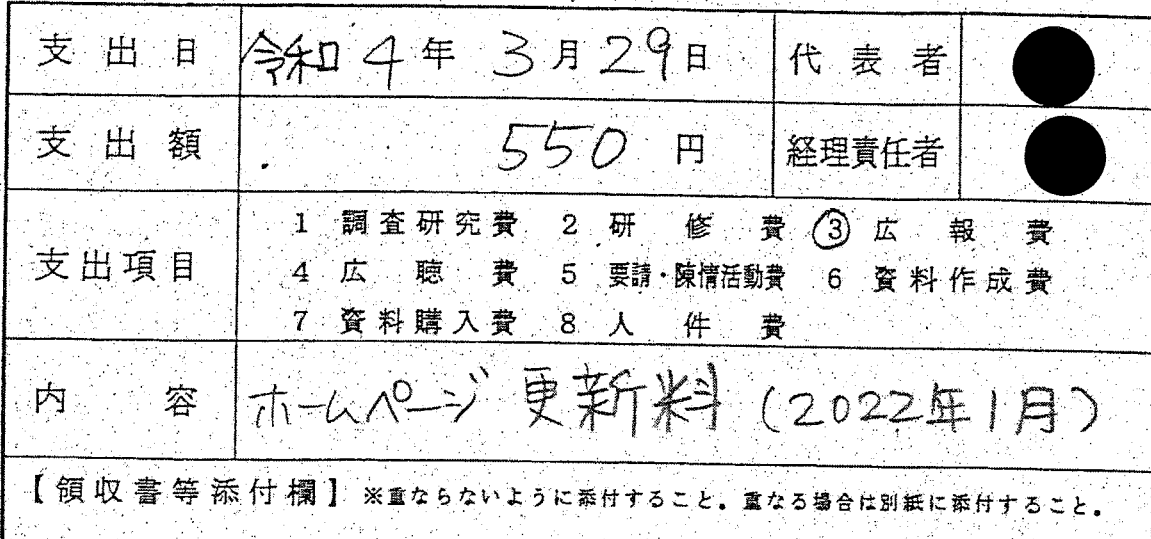 支出日 令和4年3月29日 代表者
支出額 550円 経理責任者
支出項目 1 調査研究費 2 研修費 ③ 広報費
4 広聴費 5 要請・陳情活動費 6 資料作成費
7 資料購入費 8 人件費
内容 ホームページ更新料(2022年1月)
【領収書等添付欄】※重ならないように添付すること。重なる場合は別紙に添付すること。